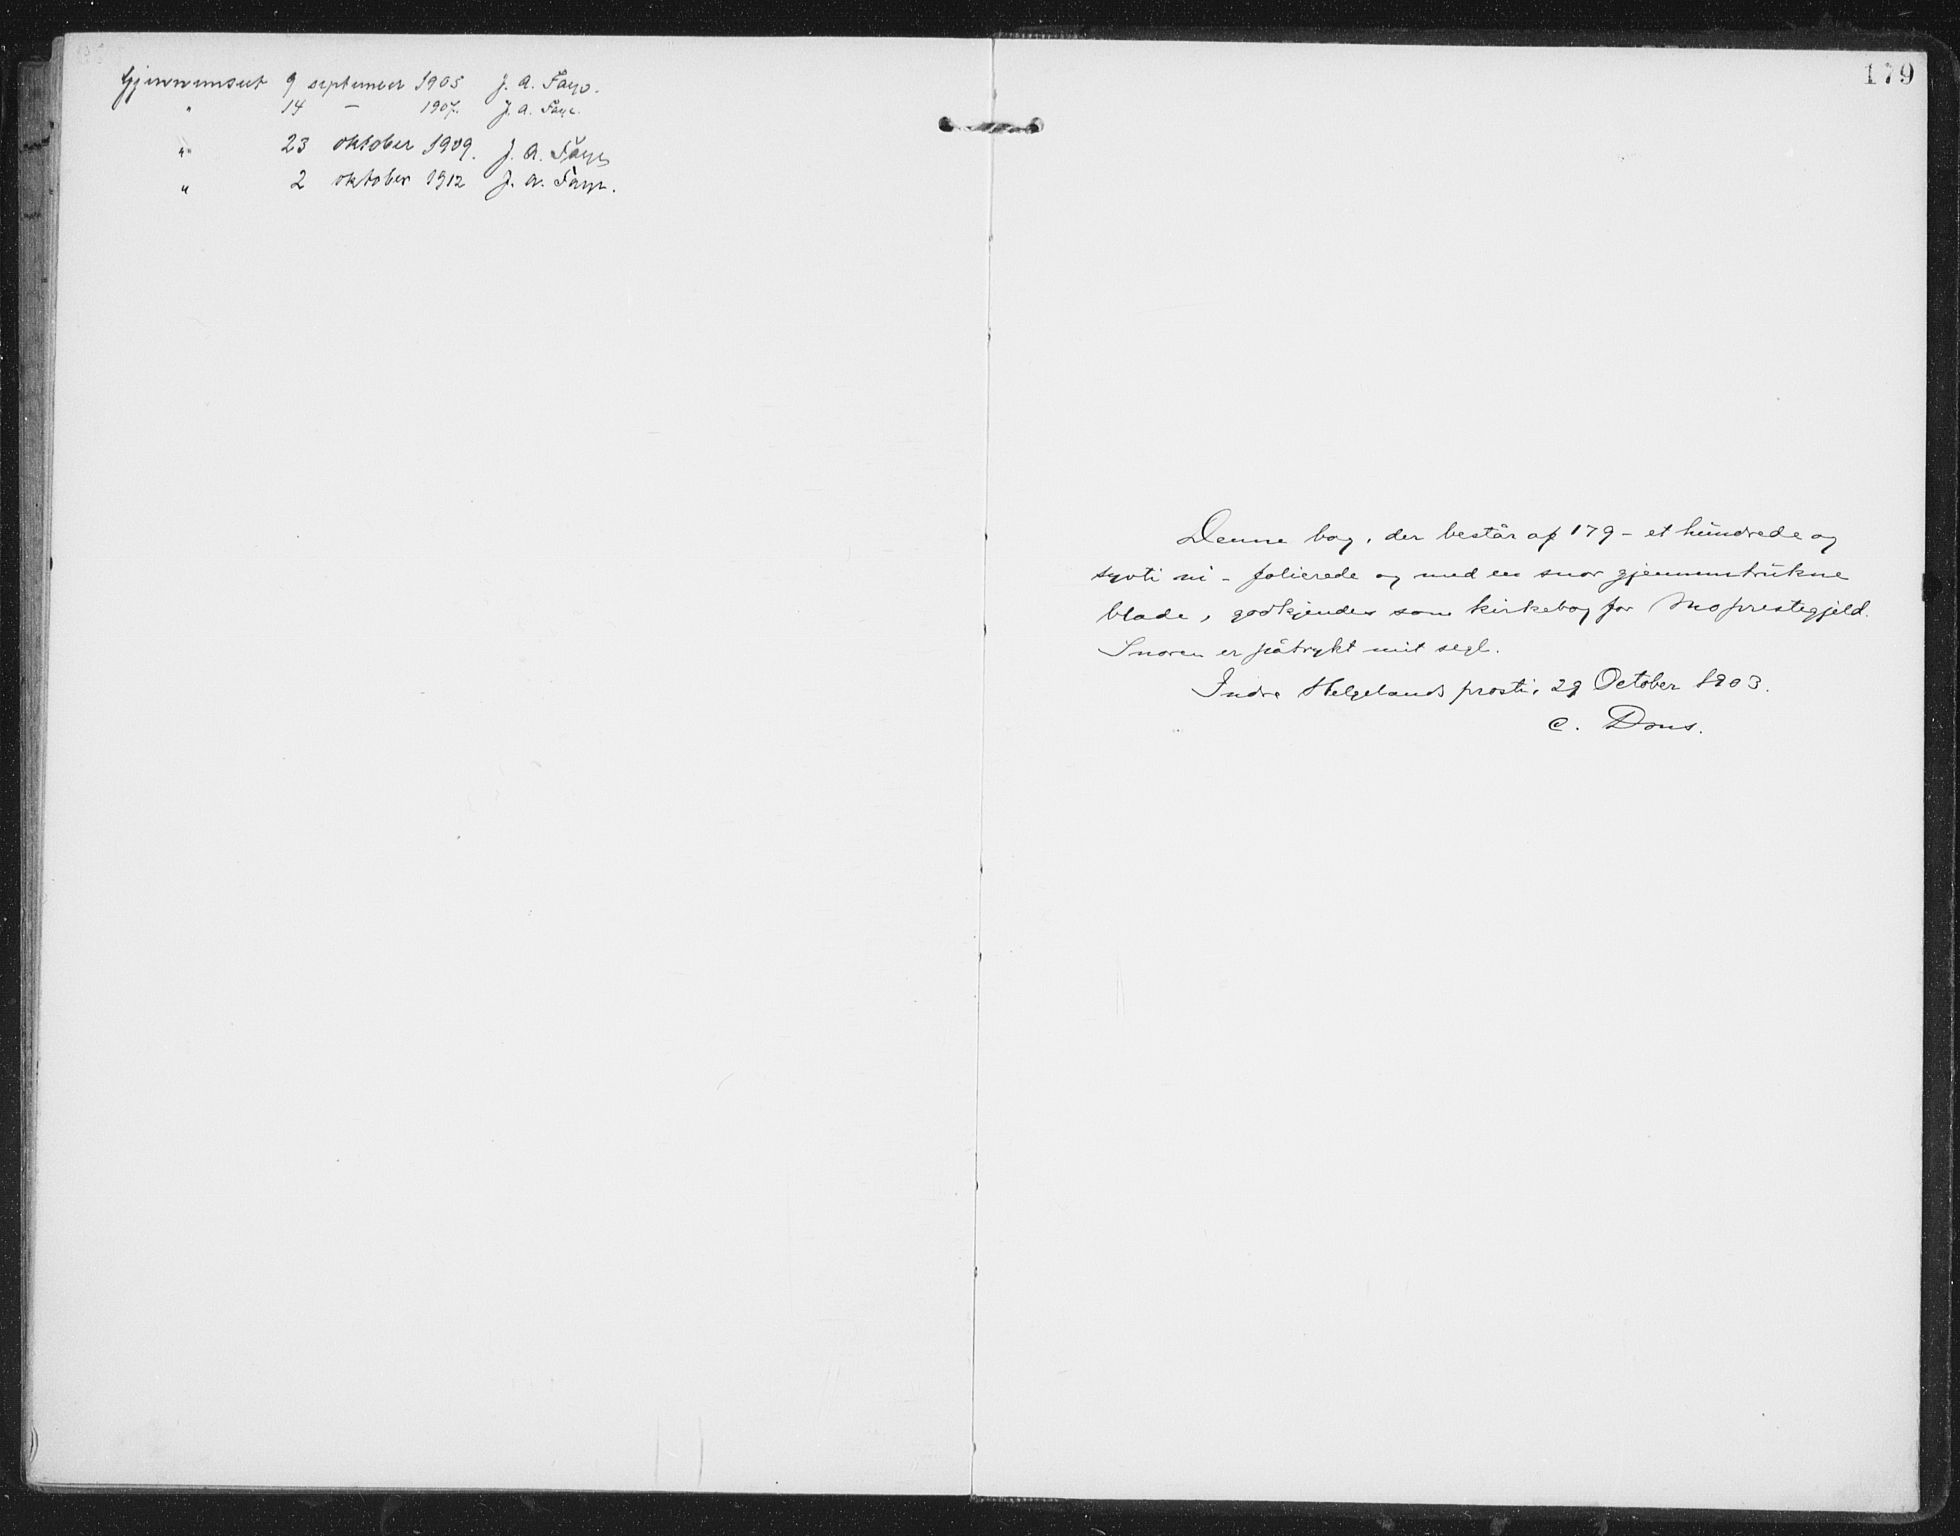 Gjennemseet 9 september 1905 J. A. Faye.
" 14 — 1907. J. A. Faye.
" 23 oktober 1909. J. A. Faye
" 2 oktober 1912 J. A. Faye.
179
Denne bog, der består af 179 - et hundrede og
sytti ni - folierede og med en snor gjennemtrukne
blade, godkjendes som kirkebog for Mo prestegjeld.
Snoren er påtrykt mit segl.
Indre Helgelands prosti, 29 October 1903.
C. Dons.